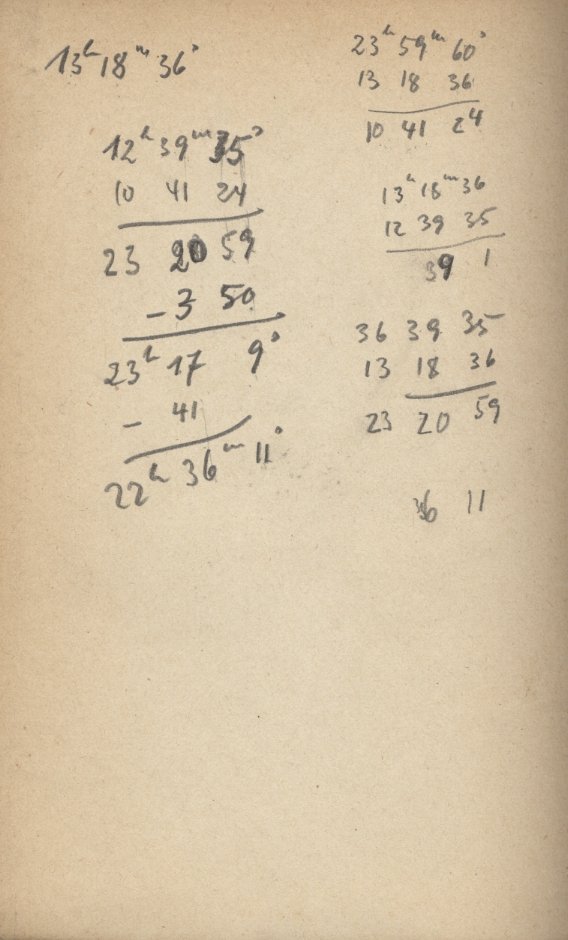 13ʰ 18ᵐ 36ˢ
12ʰ 39ᵐ 35ˢ
10 41 24
23 20 59
- 3 50
23ʰ 17 9ˢ
- 41
22ʰ 36ᵐ 11ˢ
23ʰ 59ᵐ 60ˢ
13 18 36
10 41 24
13ʰ 18ᵐ 36
12 39 35
39 1
36 39 35
13 18 36
23 20 59
36 11